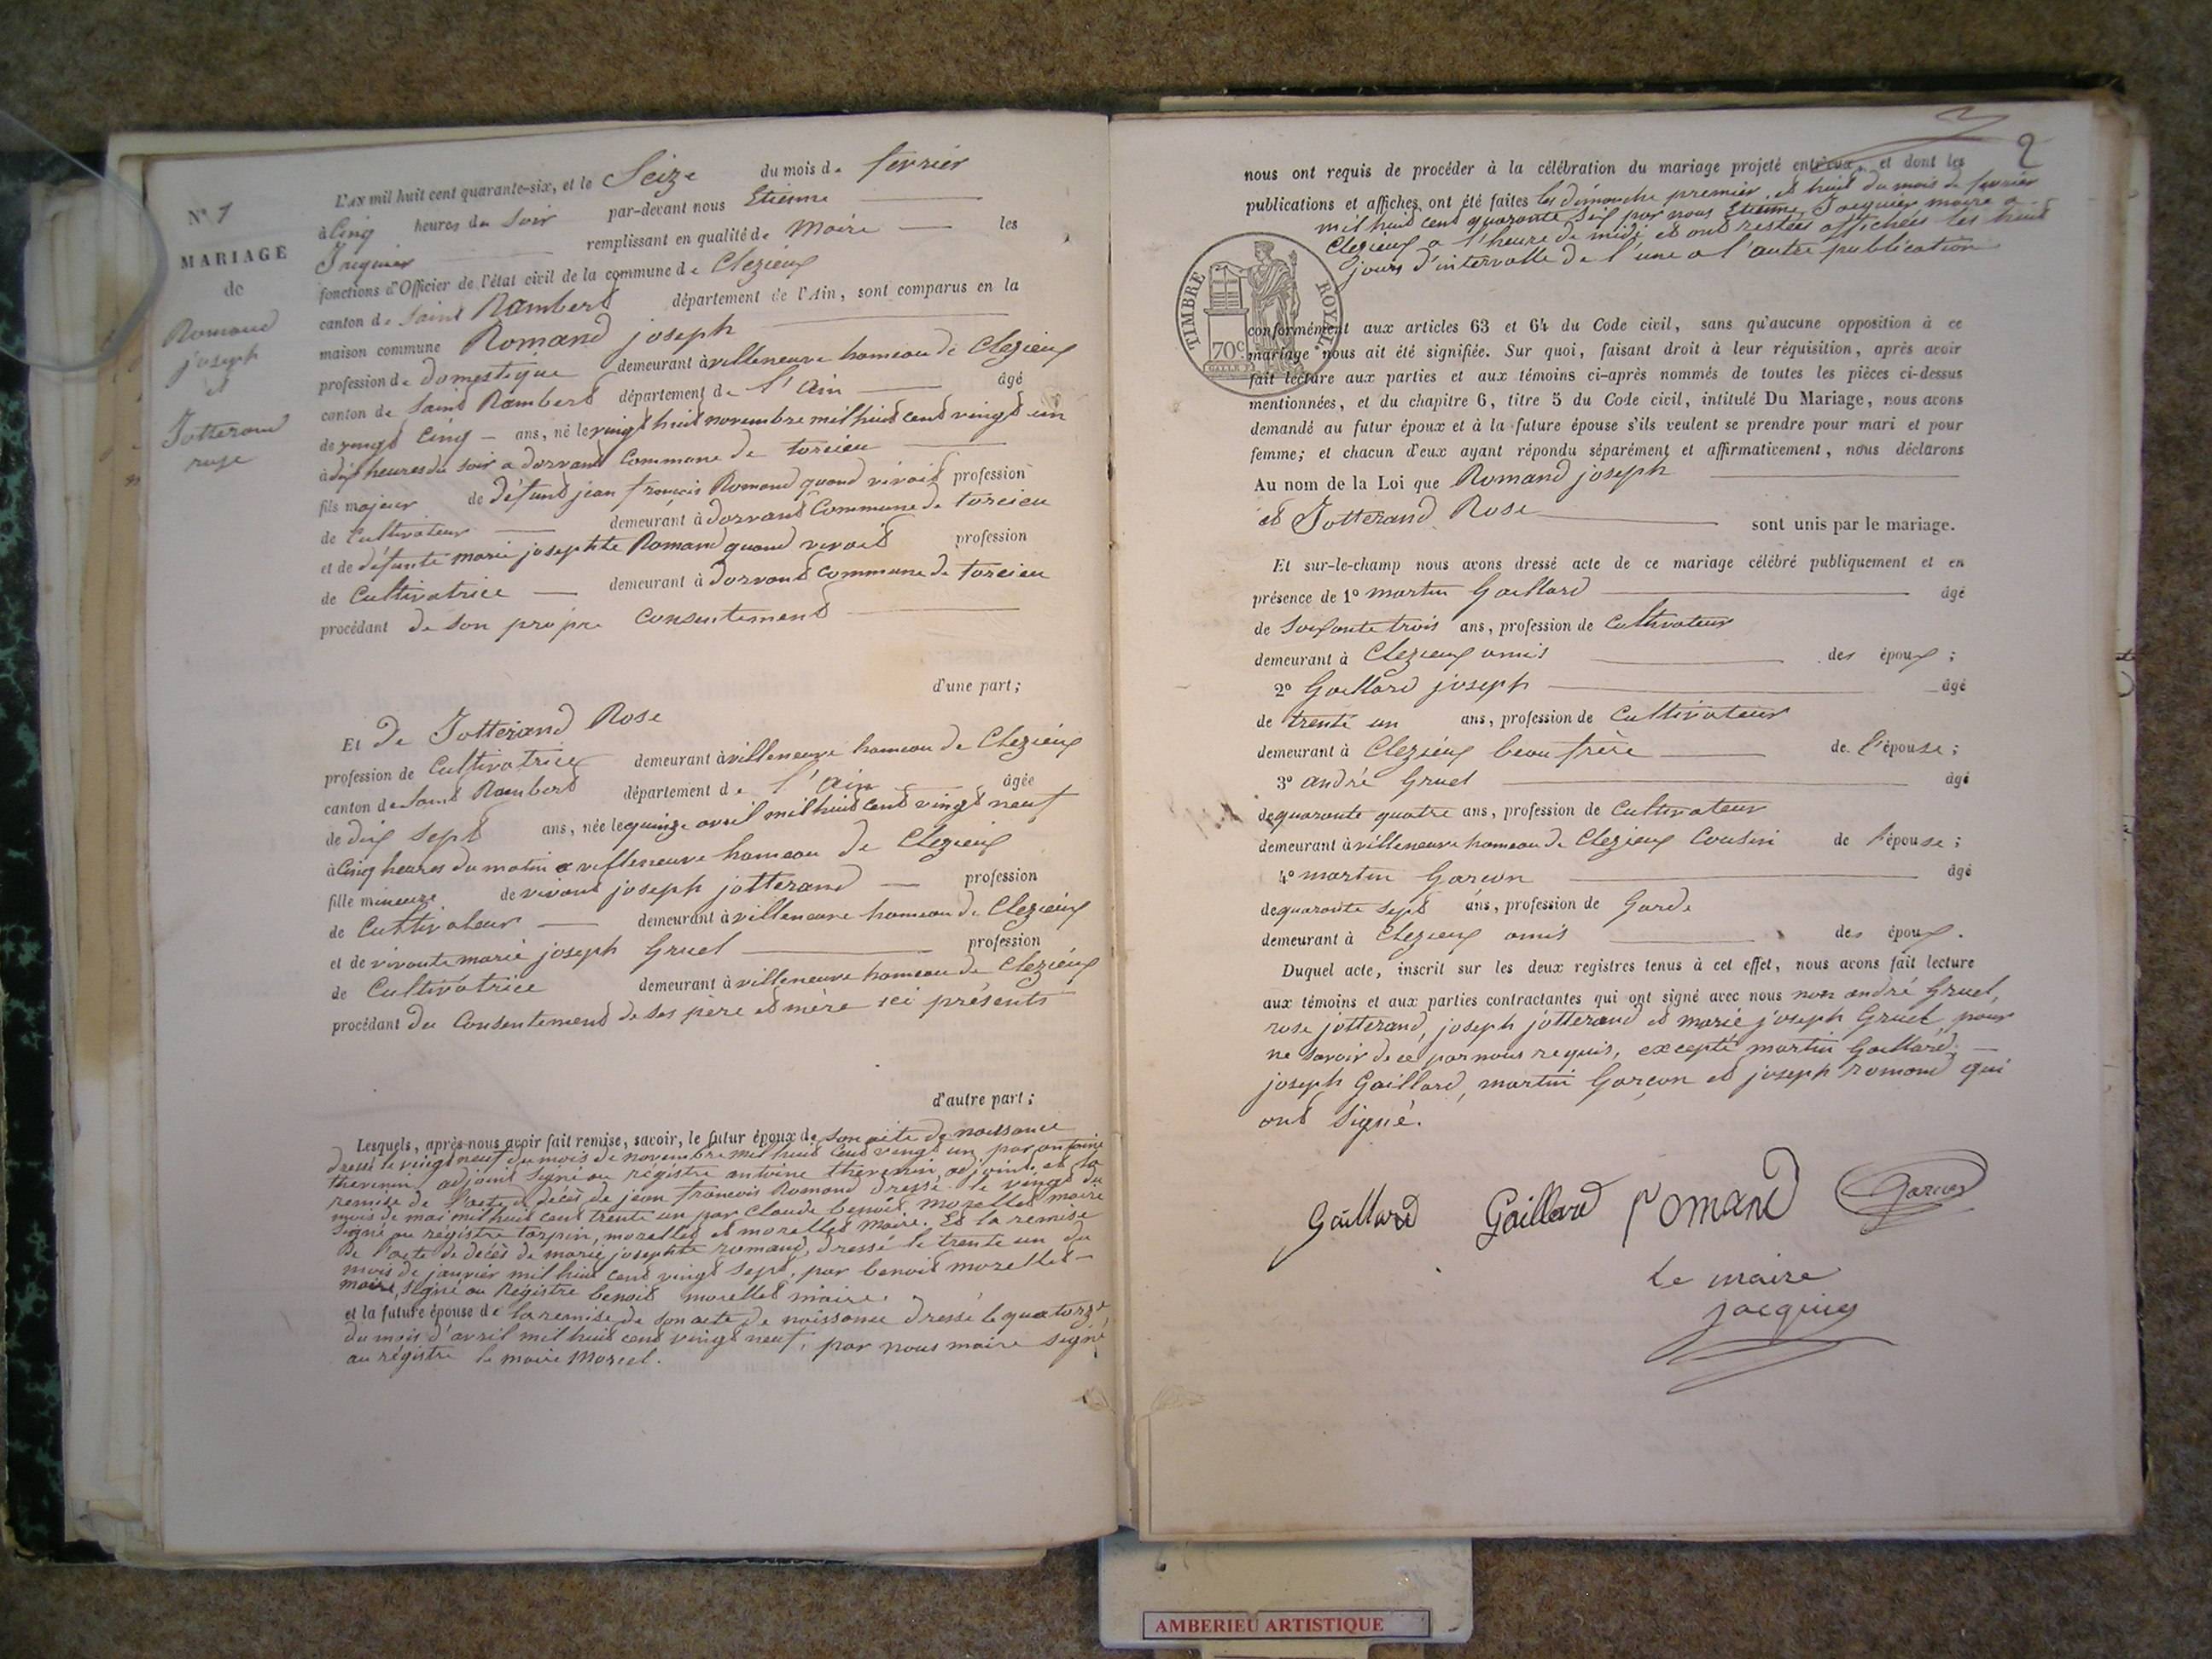 N° 1
MARIAGE
de
Romand
joseph
et
Jotterand
rose
L'AN mil huit cent quarante-six, et le Seize du mois de fevrier
à Cinq heures du Soir par-devant nous Etienne
Jaquier remplissant en qualité de Maire les
fonctions d'Officier de l'état civil de la commune de Clezieux
canton de Saint Rambert département de l'Ain, sont comparus en la
maison commune Romand joseph
profession de domestique demeurant à villeneuve hameau de Clezieux
canton de Saint Rambert département de l'Ain âgé
de vingt Cinq ans, né le vingt huit novembre mil huit cent vingt un
à dix heures du soir a dorvant Commune de torcieu
fils majeur de défunt jean francois Romand quand vivait profession
de Cultivateur demeurant à dorvant Commune de torcieu
et de défunte marie josephte Romand quand vivait profession
de Cultivatrice demeurant à dorvant commune de torcieu
procédant de son propre consentement
d'une part;
Et de Jotterand Rose
profession de Cultivatrice demeurant à villeneuve hameau de Clezieux
canton de Saint Rambert département de l'Ain âgée
de dix sept ans, née le quinze avril mil huit cent vingt neuf
à Cinq heures du matin a villeneuve hameau de Clezieux
fille mineure de vivant joseph jotterand profession
de Cultivateur demeurant à villeneuve hameau de Clezieux
et de vivante marie joseph Gruel profession
de Cultivatrice demeurant à villeneuve hameau de Clezieux
procédant du Consentement de ses père et mère ici présents
d'autre part;
Lesquels, après nous avoir fait remise, savoir, le futur époux de son acte de naissance
dressé le vingt neuf du mois de novembre mil huit cent vingt un par antoine
thevenin adjoint Signé au régistre antoine thevenin adjoint et la
remise de l'acte de décès de jean francois Romand dressé le vingt du
mois de mai mil huit cent trente un par Claude benoit morellet maire
Signé au régistre tarpin, morellet et morellet Maire. Et la remise
de l'acte de décès de marie josephte romand, dressé le trente un du
mois de janvier mil huit cent vingt sept, par benoit morellet
maire, signé au Régistre benoit morellet maire.
et la future épouse de la remise de son acte de naissance dressé le quatorze
du mois d'avril mil huit cent vingt neuf, par nous maire signé
au régistre le maire Marcel.
2
nous ont requis de procéder à la célébration du mariage projeté entr'eux, et dont les
publications et affiches ont été faites les dimanche premier et huit du mois de fevrier
mil huit cent quarante Six par nous Etienne Jacquier maire a
Clezieux a l'heure de midi et ont restées affichées les huit
jours d'intervalle de l'une a l'autre publication
TIMBRE ROYAL.
70c
conformément aux articles 63 et 64 du Code civil, sans qu'aucune opposition à ce
mariage nous ait été signifiée. Sur quoi, faisant droit à leur réquisition, après avoir
fait lecture aux parties et aux témoins ci-après nommés de toutes les pièces ci-dessus
mentionnées, et du chapitre 6, titre 5 du Code civil, intitulé Du Mariage, nous avons
demandé au futur époux et à la future épouse s'ils veulent se prendre pour mari et pour
femme; et chacun d'eux ayant répondu séparément et affirmativement, nous déclarons
Au nom de la Loi que Romand joseph
et Jotterand Rose sont unis par le mariage.
Et sur-le-champ nous avons dressé acte de ce mariage célébré publiquement et en
présence de 1° martin Gaillard âgé
de soixante trois ans, profession de Cultivateur
demeurant à Clezieux amis des époux;
2° Gaillard joseph âgé
de trente un ans, profession de Cultivateur
demeurant à Clezieux beau frère de l'épouse;
3° andré Gruel âgé
de quarante quatre ans, profession de Cultivateur
demeurant à villeneuve hameau de Clezieux Cousin de l'épouse;
4° martin Garcon âgé
de quarante sept ans, profession de Garde
demeurant à Clezieux amis des époux.
Duquel acte, inscrit sur les deux registres tenus à cet effet, nous avons fait lecture
aux témoins et aux parties contractantes qui ont signé avec nous non andré Gruel,
rose jotterand, joseph jotterand et marie joseph Gruel pour
ne savoir de ce par nous requis, excepté martin Gaillard,
joseph Gaillard, martin Garcon et joseph romand qui
ont Signé.
Gaillard Gaillard romand Garcon
Le maire
jacquier
AMBERIEU ARTISTIQUE